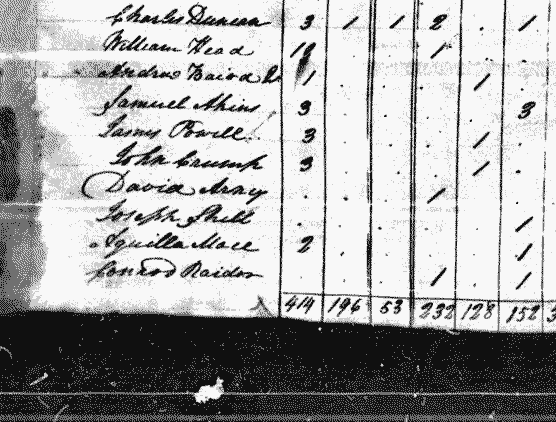 Charles Duncan 3 1 1 2 . 1
William Head . . 1 . .
Andrew 1 . . . 1 .
Samuel Akins 3 . . . . 3
James Powell 3 . . . 1 .
John Crump 3 . . . 1 .
David . . . 1 . .
Joseph Shell . . . . . 1
Aquilla Mace 2 . . . . 1
Conrod Raider . . . 1 . 1
414 196 53 232 128 152 3